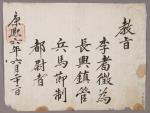 教旨
李耉徵為
長興鎮管
兵馬節制
都尉者
康熙六年六月二十日